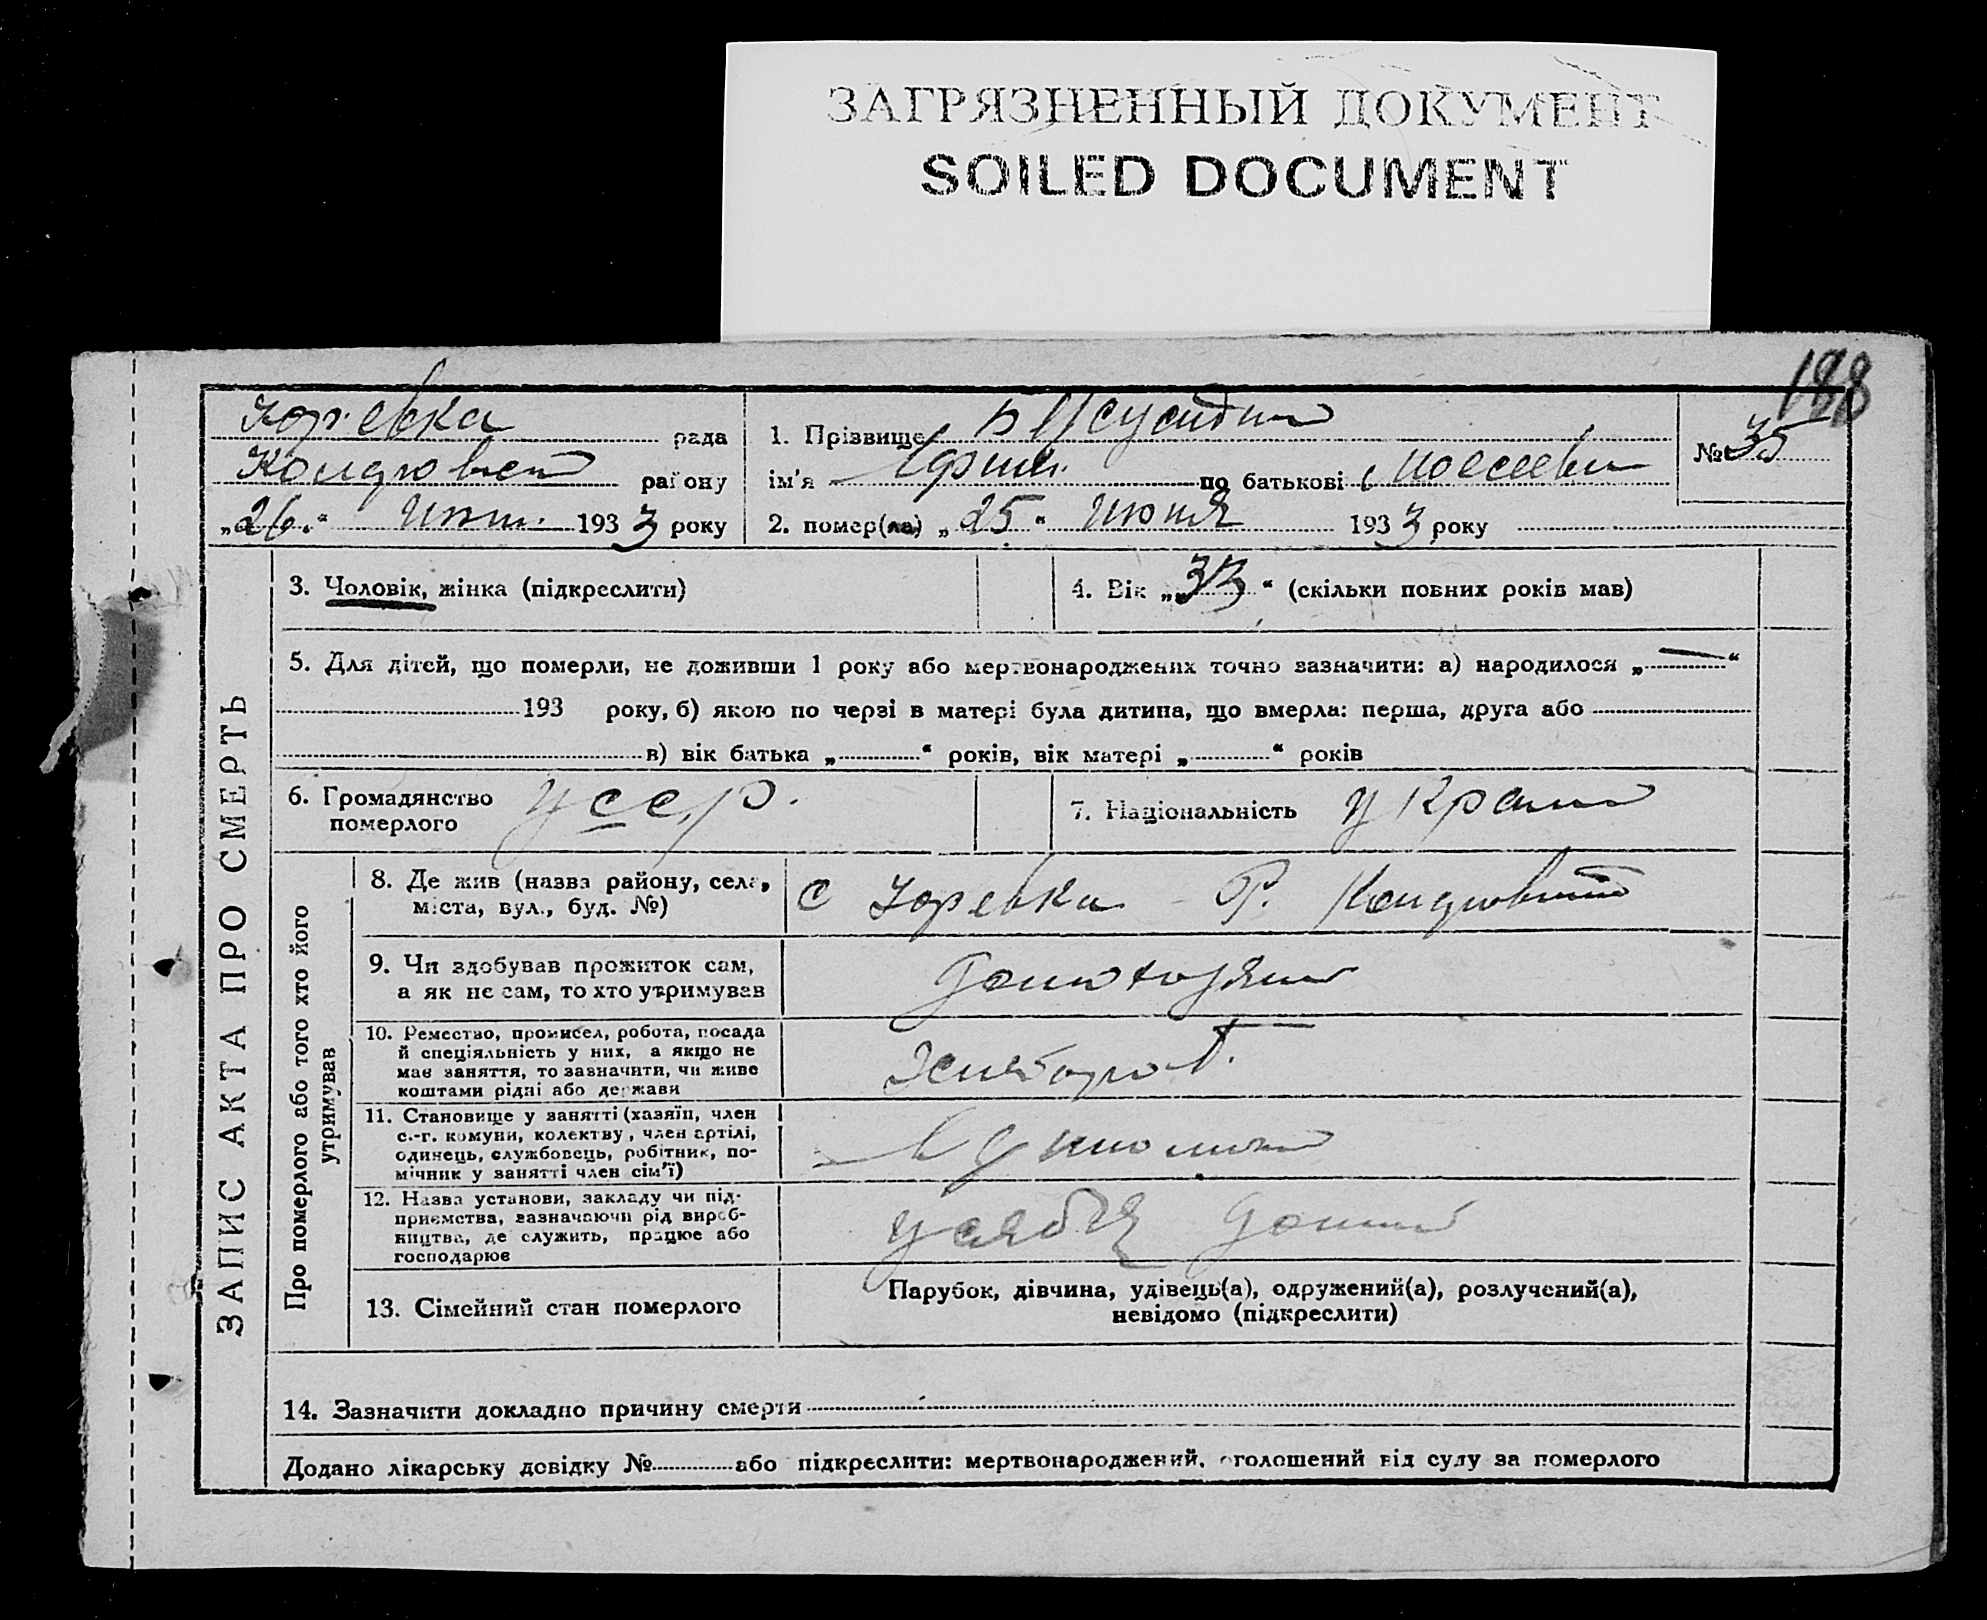 ЗАГРЯЗНЕННЫЙ ДОКУМЕНТ
SOILED DOCUMENT
188
Юрʼевка рада
району
„26.“ 1933 року
1. Прізвище
імʼя по батькові Моесеевич
2. помер(ла) „25“ июня 1933 року
№ 35
ЗАПИС АКТА ПРО СМЕРТЬ
3. Чоловік, жінка (підкреслити)
4. Вік „33“ (скільки повних років мав)
5. Для дітей, що померли, не доживши 1 року або мертвонароджених точно зазначити: а) народилося „—“
193 року, б) якою по черзі в матері була дитина, що вмерла: перша, друга або
в) вік батька „ “ років, вік матері „ “ років
6. Громадянство
померлого
УССР.
7. Національність Украин
Про померлого або того хто його
утримував
8. Де жив (назва району, села,
міста, вул., буд. №)
с Юревка Р.
9. Чи здобував прожиток сам,
а як не сам, то хто утримував
10. Ремество, промисел, робота, посада
й спеціяльність у них, а якщо не
має заняття, то зазначити, чи живе
коштами рідні або держави
11. Становище у занятті (хазяїн, член
с.-г. комуни, колектву, член артілі,
одинець, службовець, робітник, по-
мічник у занятті член сімʼї)
12. Назва установи, закладу чи під-
приємства, зазначаючи рід вироб-
ництва, де служить, працює або
господарює
13. Сімейний стан померлого
Парубок, дівчина, удівець(а), одружений(а), розлучений(а),
невідомо (підкреслити)
14. Зазначити докладно причину смерти
Додано лікарську довідку № або підкреслити: мертвонароджений, оголошений від суду за померлого